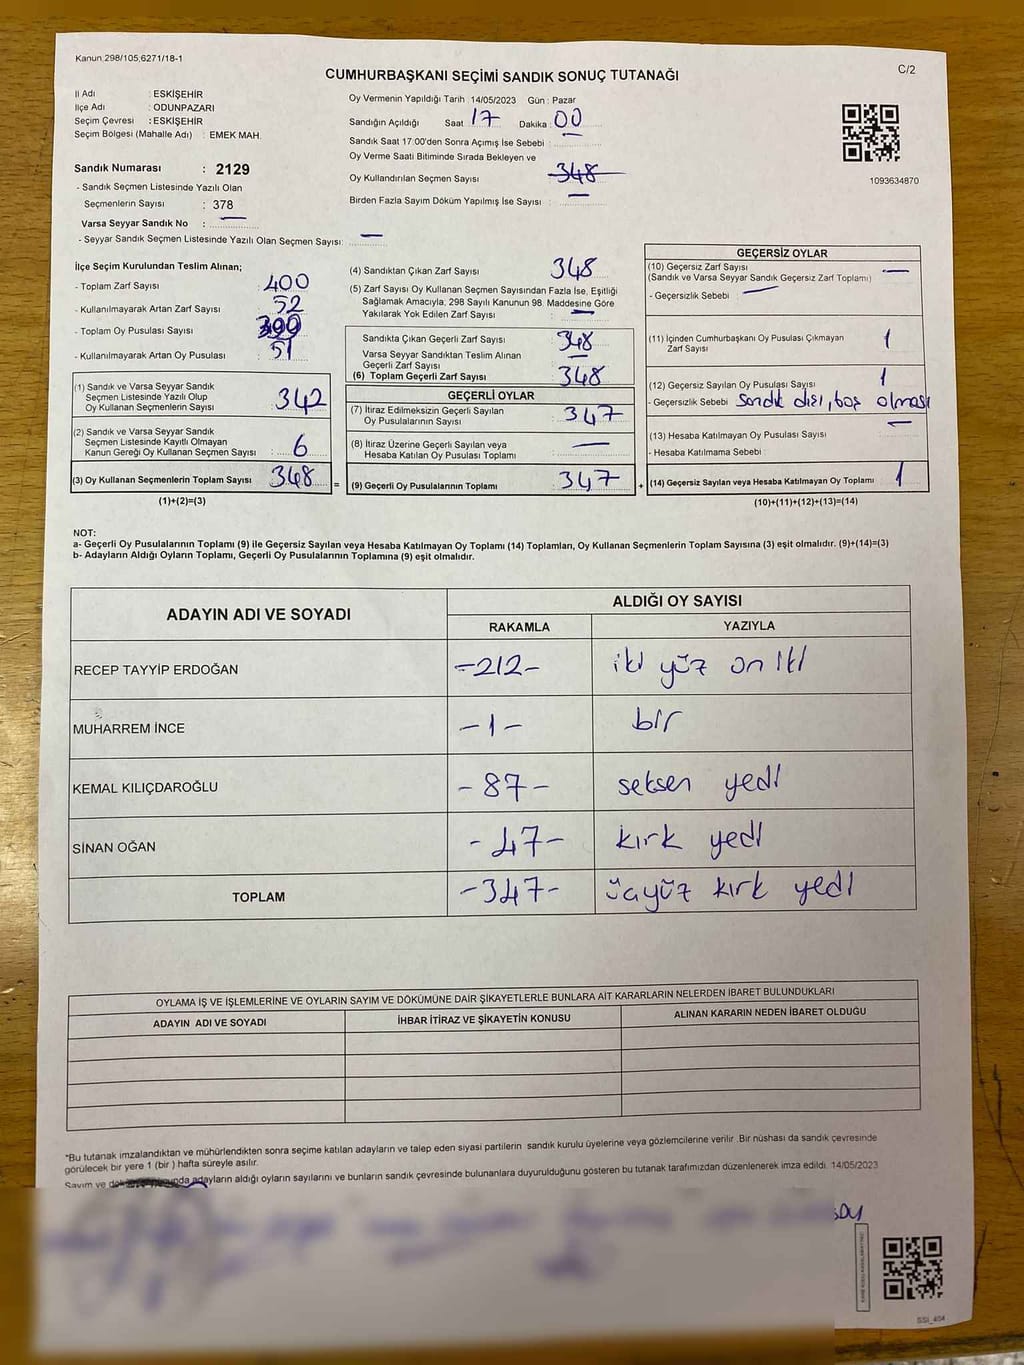 Kanun 298/105,6271/18-1
C/2
CUMHURBAŞKANI SEÇİMİ SANDIK SONUÇ TUTANAĞI
İl Adı : ESKİŞEHİR
İlçe Adı : ODUNPAZARI
Seçim Çevresi : ESKİŞEHİR
Seçim Bölgesi (Mahalle Adı) : EMEK MAH.
Sandık Numarası : 2129
- Sandık Seçmen Listesinde Yazılı Olan
Seçmenlerin Sayısı : 378
Varsa Seyyar Sandık No : —
- Seyyar Sandık Seçmen Listesinde Yazılı Olan Seçmen Sayısı: —
Oy Vermenin Yapıldığı Tarih 14/05/2023 Gün : Pazar
Sandığın Açıldığı Saat 17 Dakika 00
Sandık Saat 17:00'den Sonra Açımış İse Sebebi : —
Oy Verme Saati Bitiminde Sırada Bekleyen ve
Oy Kullandırılan Seçmen Sayısı 348
Birden Fazla Sayım Döküm Yapılmış İse Sayısı : —
1093634870
İlçe Seçim Kurulundan Teslim Alınan;
- Toplam Zarf Sayısı : 400
- Kullanılmayarak Artan Zarf Sayısı : 52
- Toplam Oy Pusulası Sayısı : 399
- Kullanılmayarak Artan Oy Pusulası : 51
(1) Sandık ve Varsa Seyyar Sandık
Seçmen Listesinde Yazılı Olup
Oy Kullanan Seçmenlerin Sayısı : 342
(2) Sandık ve Varsa Seyyar Sandık
Seçmen Listesinde Kayıtlı Olmayan
Kanun Gereği Oy Kullanan Seçmen Sayısı : 6
(3) Oy Kullanan Seçmenlerin Toplam Sayısı : 348 =
(1)+(2)=(3)
(4) Sandıktan Çıkan Zarf Sayısı 348
(5) Zarf Sayısı Oy Kullanan Seçmen Sayısından Fazla İse, Eşitliği
Sağlamak Amacıyla; 298 Sayılı Kanunun 98. Maddesine Göre
Yakılarak Yok Edilen Zarf Sayısı : —
Sandıkta Çıkan Geçerli Zarf Sayısı 348
Varsa Seyyar Sandıktan Teslim Alınan
Geçerli Zarf Sayısı —
(6) Toplam Geçerli Zarf Sayısı 348
GEÇERLİ OYLAR
(7) İtiraz Edilmeksizin Geçerli Sayılan
Oy Pusulalarının Sayısı : 347
(8) İtiraz Üzerine Geçerli Sayılan veya
Hesaba Katılan Oy Pusulası Toplamı : —
(9) Geçerli Oy Pusulalarının Toplamı : 347 +
GEÇERSİZ OYLAR
(10) Geçersiz Zarf Sayısı
(Sandık ve Varsa Seyyar Sandık Geçersiz Zarf Toplamı) —
- Geçersizlik Sebebi : —
(11) İçinden Cumhurbaşkanı Oy Pusulası Çıkmayan
Zarf Sayısı 1
(12) Geçersiz Sayılan Oy Pusulası Sayısı 1
- Geçersizlik Sebebi Sandık dışı, boş olması
(13) Hesaba Katılmayan Oy Pusulası Sayısı : —
- Hesaba Katılmama Sebebi :
(14) Geçersiz Sayılan veya Hesaba Katılmayan Oy Toplamı 1
(10)+(11)+(12)+(13)=(14)
NOT:
a- Geçerli Oy Pusulalarının Toplamı (9) ile Geçersiz Sayılan veya Hesaba Katılmayan Oy Toplamı (14) Toplamları, Oy Kullanan Seçmenlerin Toplam Sayısına (3) eşit olmalıdır. (9)+(14)=(3)
b- Adayların Aldığı Oyların Toplamı, Geçerli Oy Pusulalarının Toplamına (9) eşit olmalıdır.
ADAYIN ADI VE SOYADI
ALDIĞI OY SAYISI
RAKAMLA YAZIYLA
RECEP TAYYİP ERDOĞAN -212- iki yüz on iki
MUHARREM İNCE -1- bir
KEMAL KILIÇDAROĞLU -87- seksen yedi
SİNAN OĞAN -47- kırk yedi
TOPLAM -347- üçyüz kırk yedi
OYLAMA İŞ VE İŞLEMLERİNE VE OYLARIN SAYIM VE DÖKÜMÜNE DAİR ŞİKAYETLERLE BUNLARA AİT KARARLARIN NELERDEN İBARET BULUNDUKLARI
ADAYIN ADI VE SOYADI İHBAR İTİRAZ VE ŞİKAYETİN KONUSU ALINAN KARARIN NEDEN İBARET OLDUĞU
*Bu tutanak imzalandıktan ve mühürlendikten sonra seçime katılan adayların ve talep eden siyasi partilerin sandık kurulu üyelerine veya gözlemcilerine verilir. Bir nüshası da sandık çevresinde
görülecek bir yere 1 (bir ) hafta süreyle asılır.
Sayım ve adayların aldığı oyların sayılarını ve bunların sandık çevresinde bulunanlara duyurulduğunu gösteren bu tutanak tarafımızdan düzenlenerek imza edildi. 14/05/2023